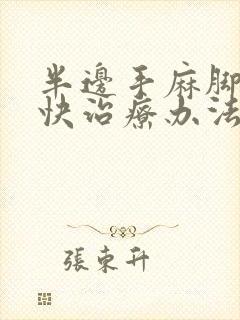 半邊手麻腳
快治療办法
張東升